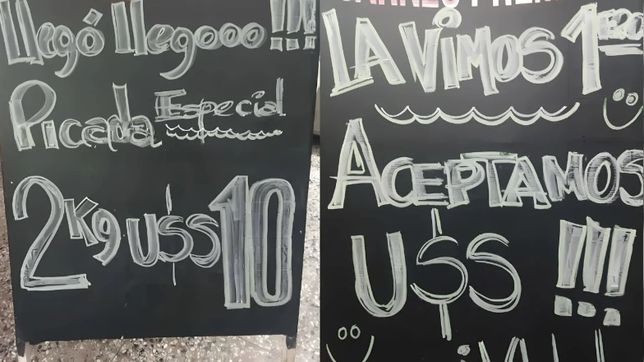 Llegó llegooo!!!
Picada Especial
2Kg U$S 10
LA VIMOS 1ERO
ACEPTAMOS
U$S !!!